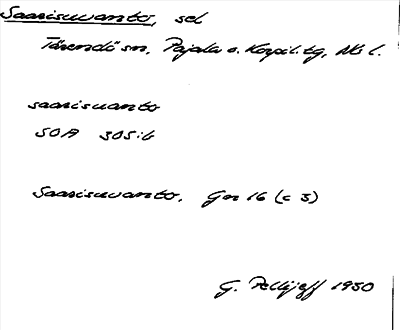 Saarisuvanto, sel
Tärendö sn, Pajala o. Korpil. tg, Nb l.
saarisuanto
SOA 305:6
Saarisuvanto. Gn 16 (c 3)
G. Pellijeff 1950